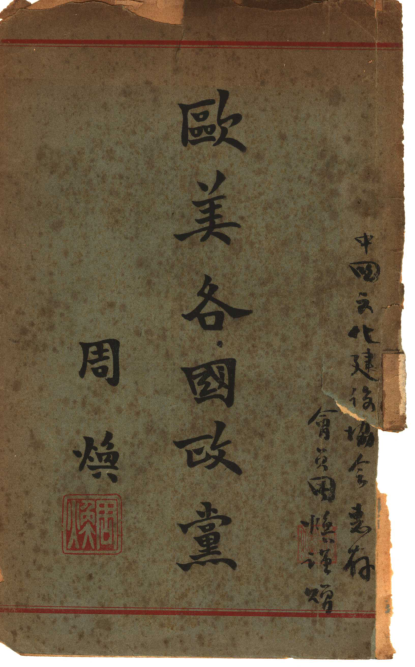 中國文化建設協會惠存
會員周煥謹贈
歐美各國政黨
周煥
周煥